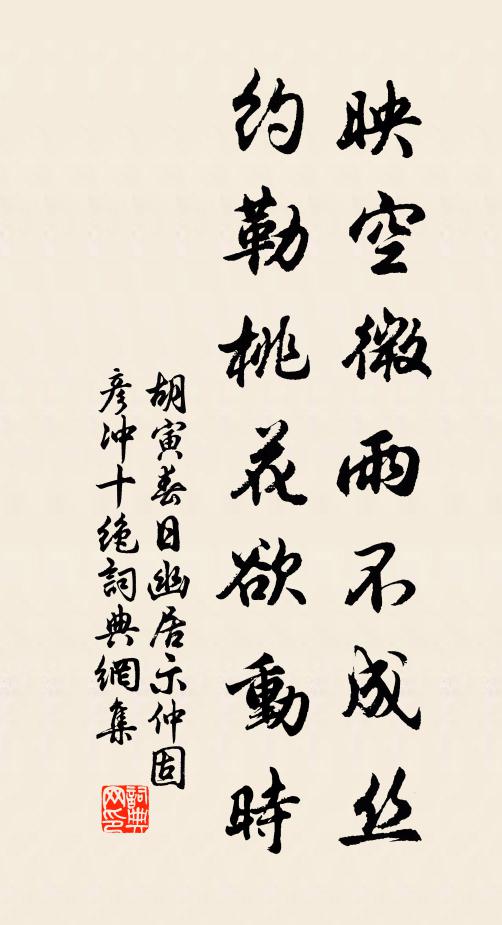 映空微雨不成丝
約勒桃花欲動時
胡寅春日幽居示仲固
彦冲十绝詞典網集
詞典
网印